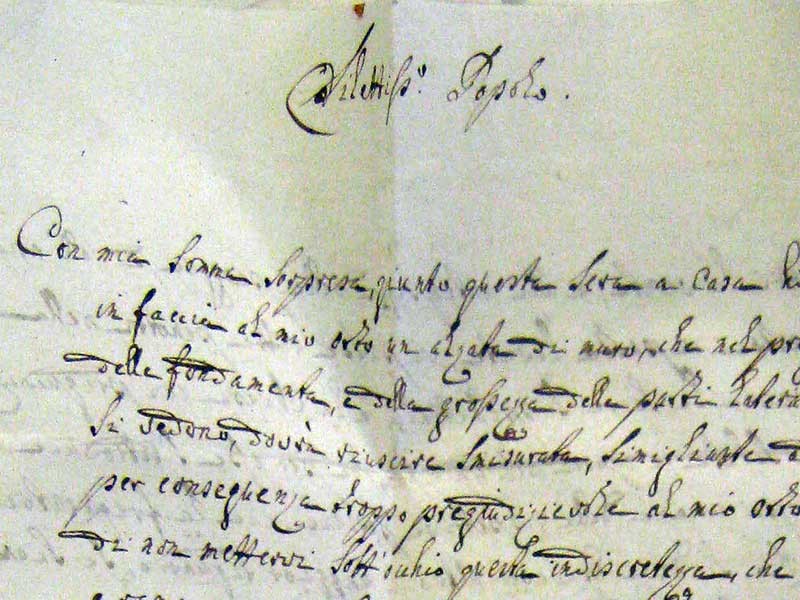 Dilettiss.o Popolo.
Con mia somma sorpresa, giunto questa sera a casa
in faccia al mio orto un alzata di muro, che nel
delle fondamenta, e della grossezza delle parti
si vedono, dovrà riuscire smisurata, simigliante
per conseguenza troppo pregiudizievole al mio orto
di non mettervi sott'ochio questa indiscretezza, che